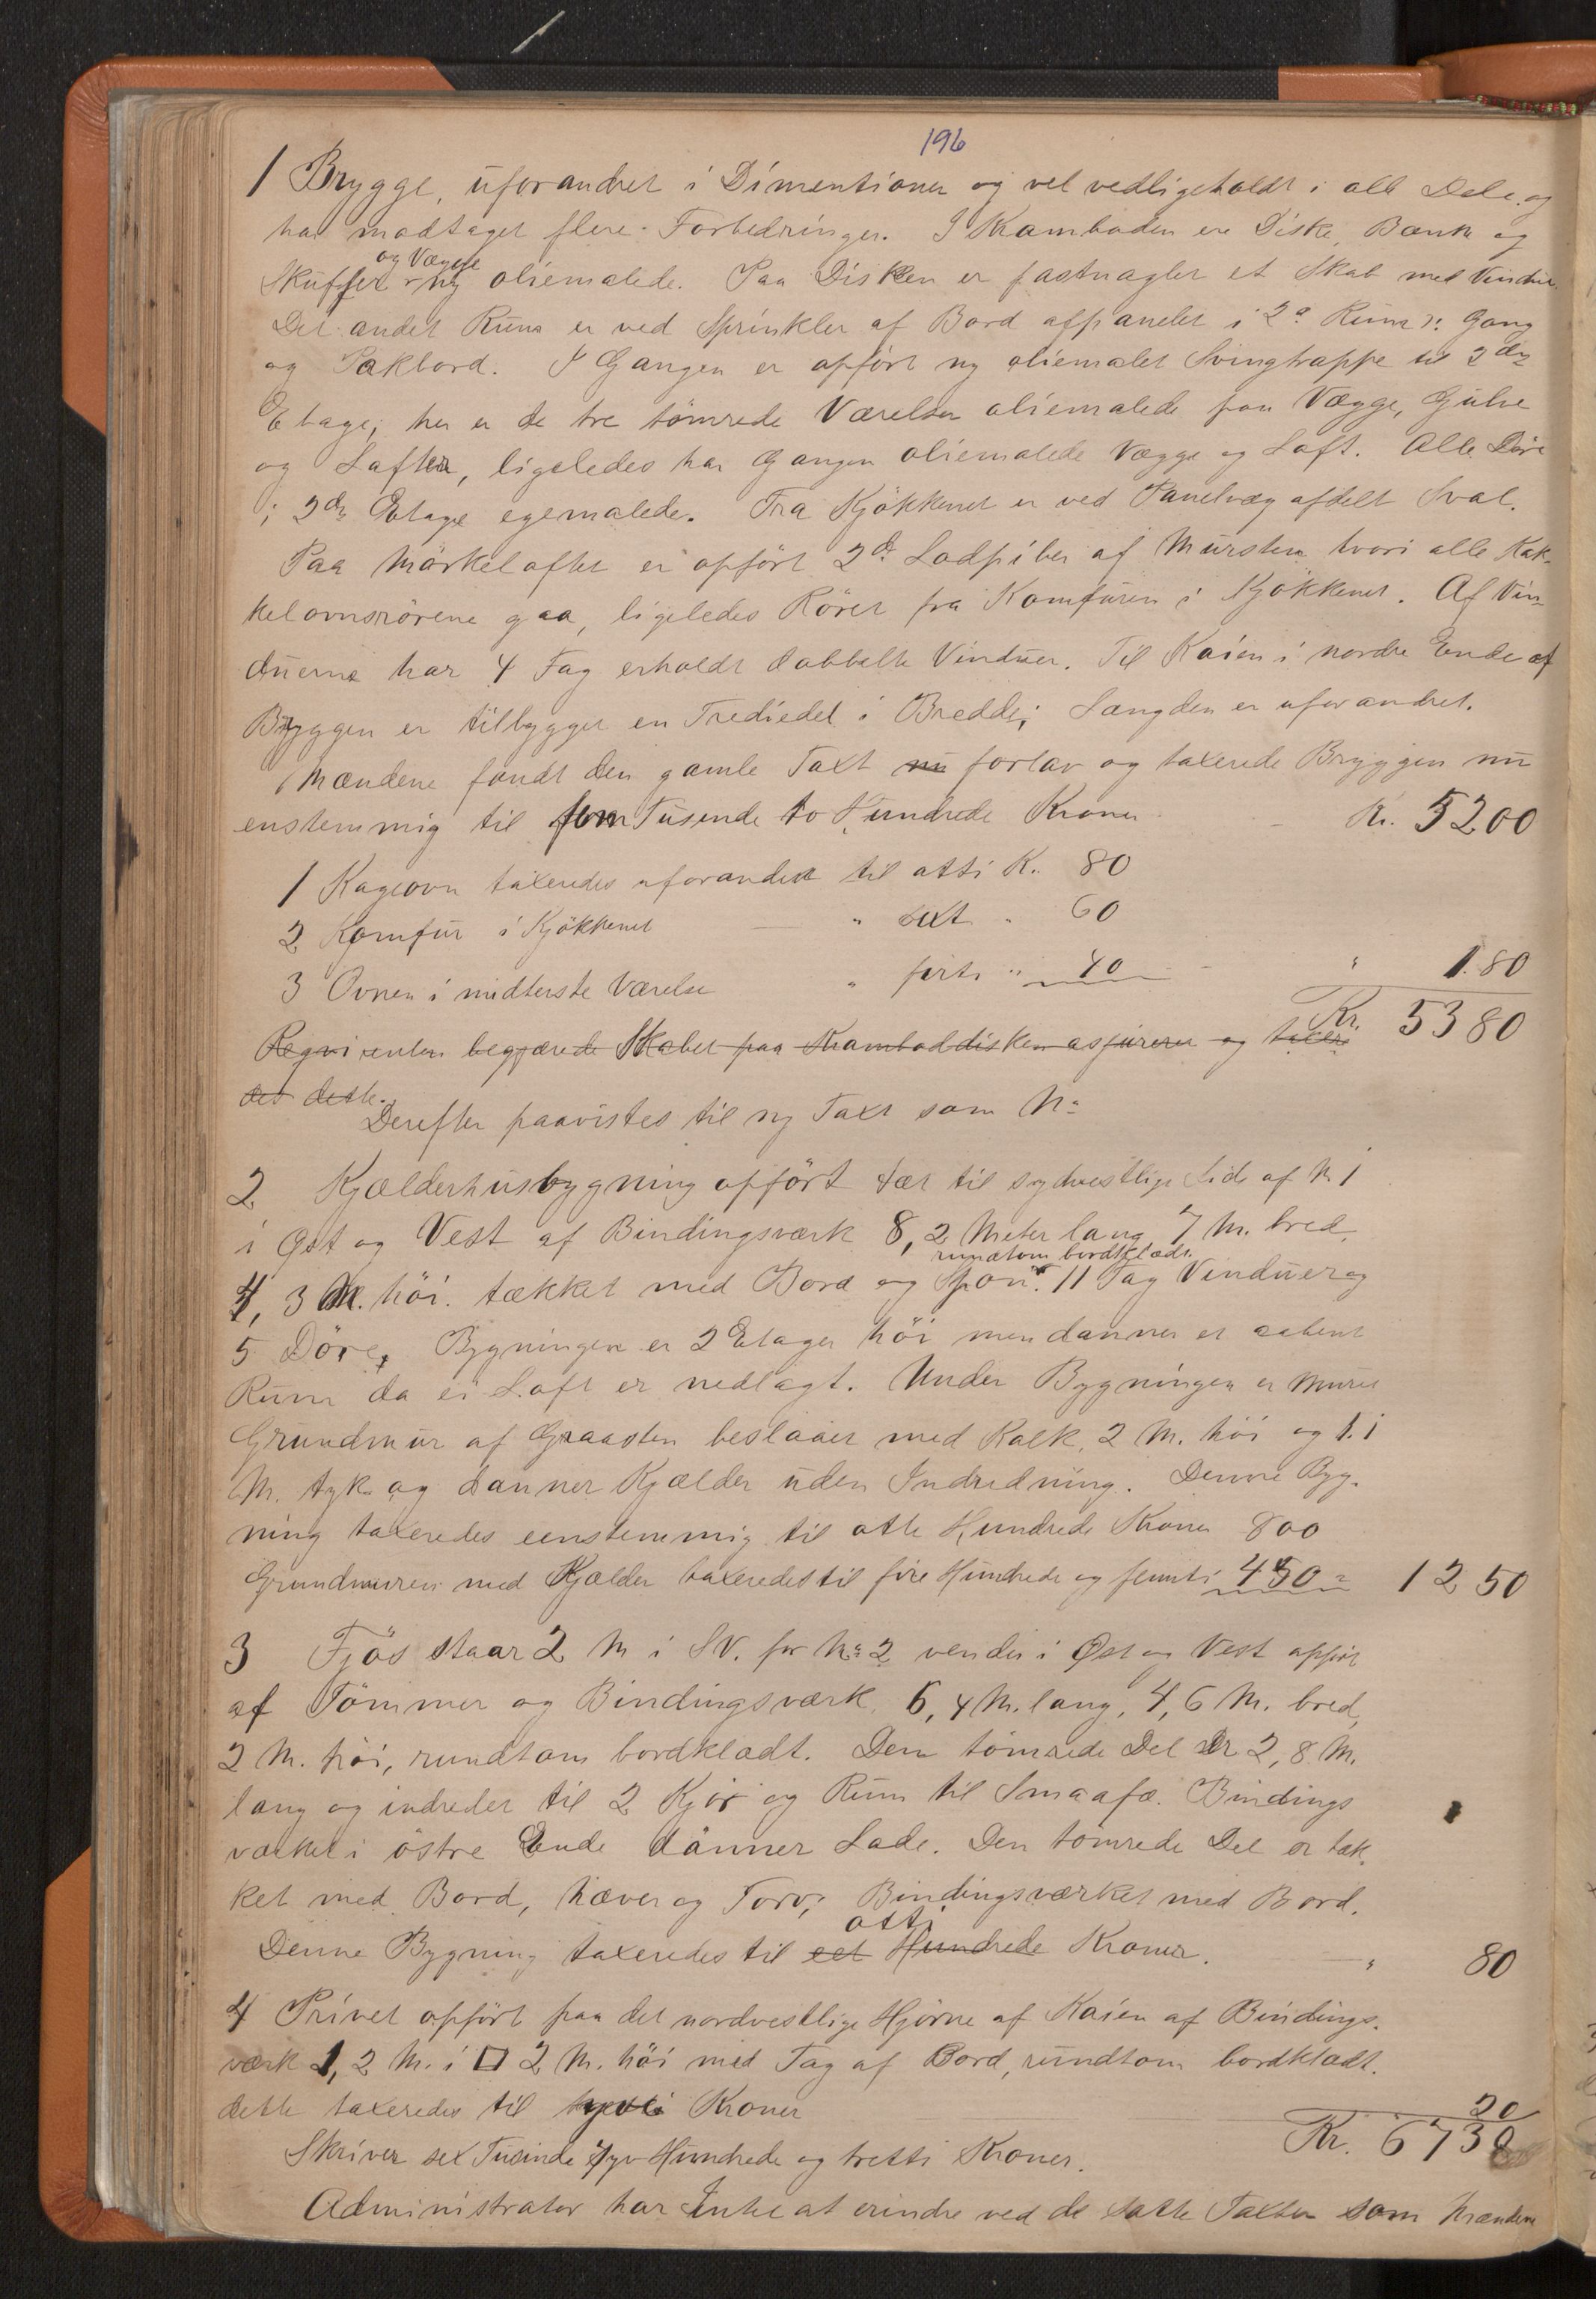 196
1 Brygge, uforandret i Dimentioner og vel vedligeholdt i alle Dele og
har modtaget flere Forbedringer. I Kramboden ere Diske, Bænk og
og Vægge
Skuffer ny oliemalede. Paa Disken er fastnaglet et Skab med Vinduer.
Det andet Rum er ved Sprinkler af Bord afpanelet i 2de Rum :: Gang
og Pakbord. I Gangen er opført ny oliemalet Svingtrappe til 2den
Etage; her er de tre tømrede Værelser oliemalede paa Vægge, Gulve
og Lofter, ligeledes har Gangen oliemalede Vægge og Loft. Alle Döre
i 2den Etage egemalede. Fra Kjökkenet er ved Panelvæg afdelt Sval.
Paa Mörkeloftet er opfört 2de Lodpiber af Mursten hvori alle Kak-
kelovnsrörene gaa, ligeledes Röret fra Komfuren i Kjökkenet. Af Vin-
duerne har 4 Fag erholdt dobbelte Vinduer. Til Kaien i nordre Ende af
Bryggen er tilbygget en Trediedel i Bredde; Længden er uforandret.
Mændene fandt den gamle Taxt nu forlav og taxerede Bryggen nu
enstemmig til fem Tusende to Hundrede Kroner Kr. 5200
1 Kageovn taxeredes uforandret til otti K. 80
2 Komfur i Kjökkenet " sext " 60
3 Ovnen i midterste Værelse " förti " 40 " 180
Kr. 5380
Reqvirenten begjærede Skabet paa Kramboddisken assureret og taxere
des dette.
Derefter paavistes til ny Taxt som No
2 Kjælderhusbygning opfört tæt til sydvestlige Side af N 1
i Øst og Vest af Bindingsværk 8,2 Meter lang 7 M. bred
rundtom bordklædt.
4,3 M. höi. tækket med Bord og Spon. 11 Fag Vinduer og
5 Döre. Bygningen er 2 Etager höi men danner et aabent
Rum da ei Loft er nedlagt. Under Bygningen er muret
Grundmur af Graasten beslaaet med Kalk, 2 M. höi og 1.1
M. tyk og danner Kjælder uden Indredning. Denne Byg-
ning taxeredes eenstemmig til otte Hundrede Kroner 800
Grundmuren med Kjælder taxeredes til fire Hundrede og femti 450 = 1250
3 Fjös staar 2 M i SV. for No 2 vender i Øst og Vest opfört
af Tömmer og Bindingsværk, 6,4 M. lang, 4,6 M. bred,
2 M. höi, rundtom bordklædt. Den tömrede Del er 2,8 M.
lang og indredet til 2 Kjör og Rum til Smaafæ. Bindings
værket i östre Ende danner Lade. Den tömrede Del er tæk-
ket med Bord, Næver og Torv; Bindingsværket med Bord.
otti
Denne Bygning taxeredes til eet Hundrede Kroner. " 80
4 Privet opfört paa det nordvestlige Hjörne af Kaien af Bindings-
værk 1,2 M. i □ 2 M. höi med Tag af Bord, rundtom bordklædt.
dette taxeredes til tyve Kroner 20
Kr. 6730
Skriver sex Tusinde syv Hundrede og tretti Kroner.
Administrator har Intet at erindre ved de satte Taxter som Mændene